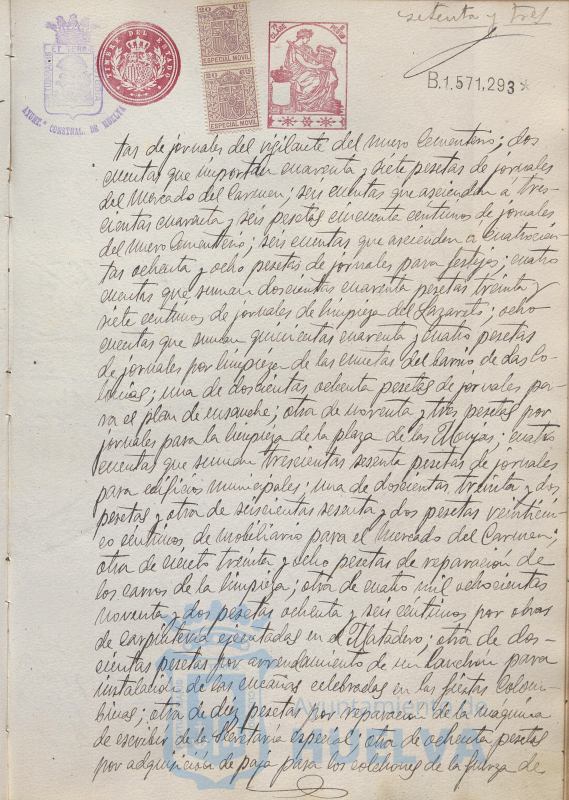 setenta y tres
TIMBRE DEL ESTADO
20 CTS
ESPECIAL MOVIL
20 CTS
ESPECIAL MOVIL
AYUNT.º CONSTNAL. DE HUELVA
B.1.571,293 *
tas de jornales del vigilante del nuevo Cementerio; dos
cuentas que importan cuarenta y siete pesetas de jornales
del Mercado del Carmen; seis cuentas que ascienden a tres-
cientas cuarenta y seis pesetas cincuenta centimos de jornales
del nuevo Cementerio; seis cuentas que ascienden a cuatrocien-
tas ochenta y ocho pesetas de jornales para festejos; cuatro
cuentas que suman doscientas cuarenta pesetas treinta y
siete centimos de jornales de limpieza del Lazareto; ocho
cuentas que suman quinientas cuarenta y cuatro pesetas
de jornales por limpieza de las cunetas del barrio de las Co-
lonias; una de doscientas ochenta pesetas de jornales pa-
ra el plan de ensanche; otra de noventa y tres pesetas por
jornales para la limpieza de la plaza de las Monjas; cuatro
cuentas que suman trescientas sesenta pesetas de jornales
para edificios municipales; una de doscientas treinta y dos
pesetas y otra de seiscientas sesenta y dos pesetas veinticin-
co centimos de mobiliario para el Mercado del Carmen;
otra de ciento treinta y ocho pesetas de reparación de
los carros de la limpieza; otra de cuatro mil ochocientas
noventa y dos pesetas ochenta y seis centimos por obras
de carpinteria ejecutadas en el Matadero; otra de dos-
cientas pesetas por arrendamiento de un para
instalación de las cucañas celebradas en las fiestas Colom-
binas; otra de diez pesetas por reparación de la maquina
de escribir de la Secretaria especial; otra de ochenta pesetas
por adquisición de paja para los colchones de la fuerza de
Ayuntamiento de
HUELVA